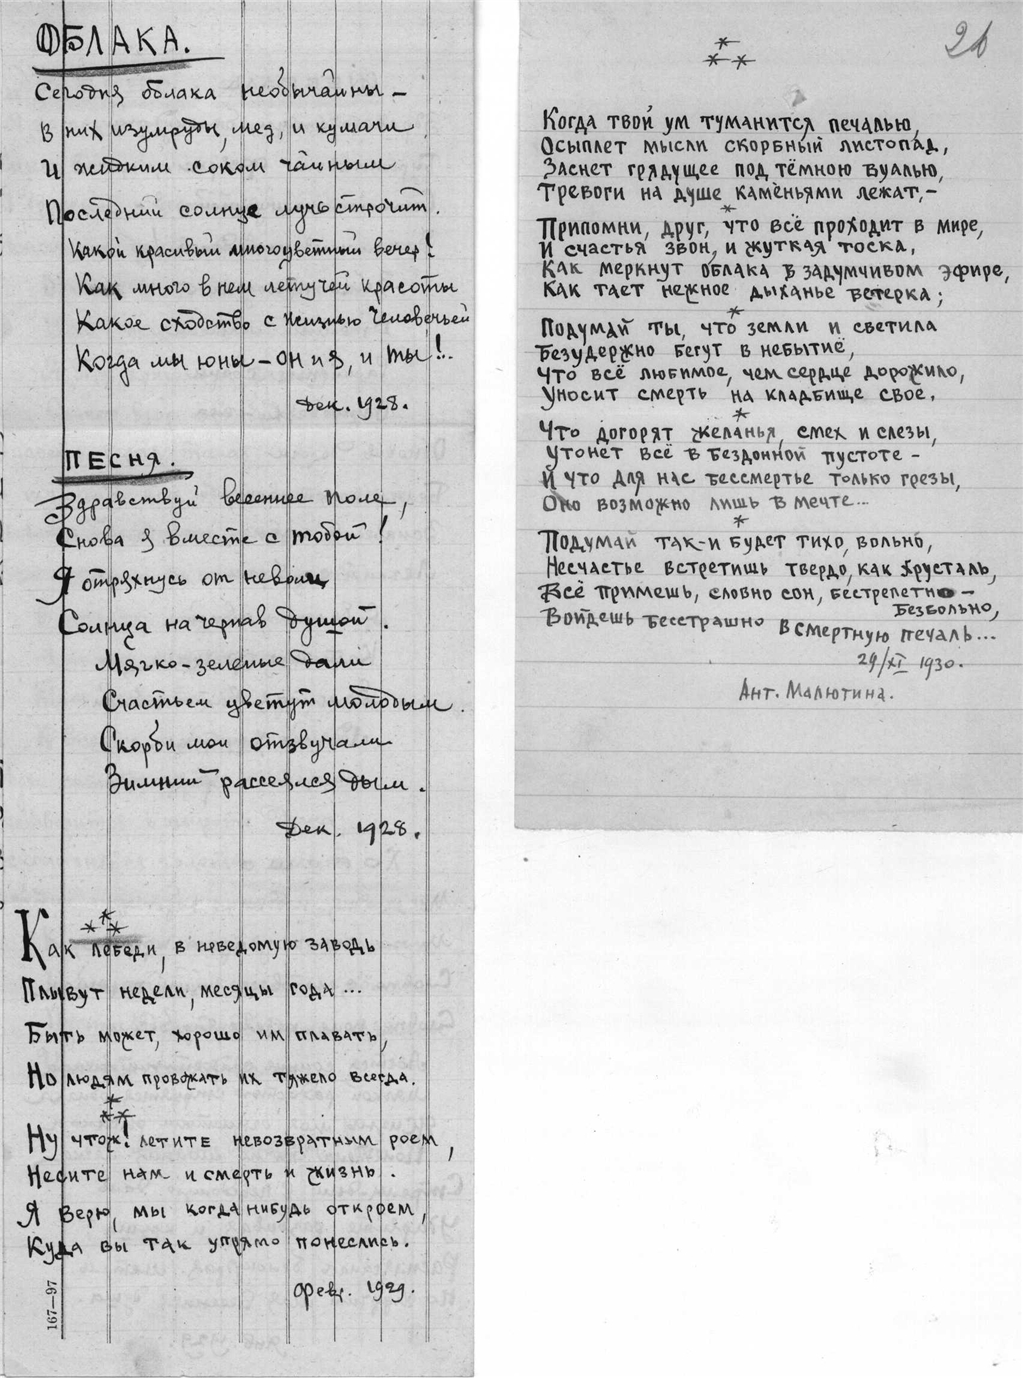 ОБЛАКА.
Сегодня облака необычайны —
В них изумруды, мед, и кумачи
И жидким соком чайным
Последний солнце лучь строчит.
Какой красивый многоцветный вечер!
Как много в нем летучей красоты
Какое сходство с жизнью человечьей
Когда мы юны — он и я, и ты!..
Дек. 1928.
ПЕСНЯ.
Здравствуй весеннее поле,
Снова я вместе с тобой!
Я отряхнусь от неволи
Солнца на черпав душой.
Мягко-зеленые дали
Счастьем цветут молодым.
Скорби мои отзвучали
Зимний рассеялся дым.
Дек. 1928.
***
Как лебеди, в неведомую заводь
Плывут недели, месяцы года...
Быть может, хорошо им плавать,
Но людям провожать их тяжело всегда.
***
Ну чтож! летите невозвратным роем,
Несите нам и смерть и жизнь.
Я верю, мы когда нибудь откроем,
Куда вы так упрямо понеслись.
Февр. 1929.
167—97
***
Когда твой ум туманится печалью,
Осыплет мысли скорбный листопад,
Заснет грядущее под тёмною вуалью,
Тревоги на душе каменьями лежат,—
*
Припомни, друг, что всё проходит в мире,
И счастья звон, и жуткая тоска,
Как меркнут облака в задумчивом эфире,
Как тает нежное дыханье ветерка;
*
Подумай ты, что земли и светила
Безудержно бегут в небытиё,
Что всё любимое, чем сердце дорожило,
Уносит смерть на кладбище свое.
*
Что догорят желанья, смех и слезы,
Утонет всё в бездонной пустоте —
И что для нас бессмертье только грезы,
Оно возможно лишь в мечте...
*
Подумай так — и будет тихо, вольно,
Несчастье встретишь твердо, как хрусталь,
Всё примешь, словно сон, бестрепетно —
безбольно,
Войдешь бесстрашно в смертную печаль...
29/XI 1930.
Ант. Малютина.